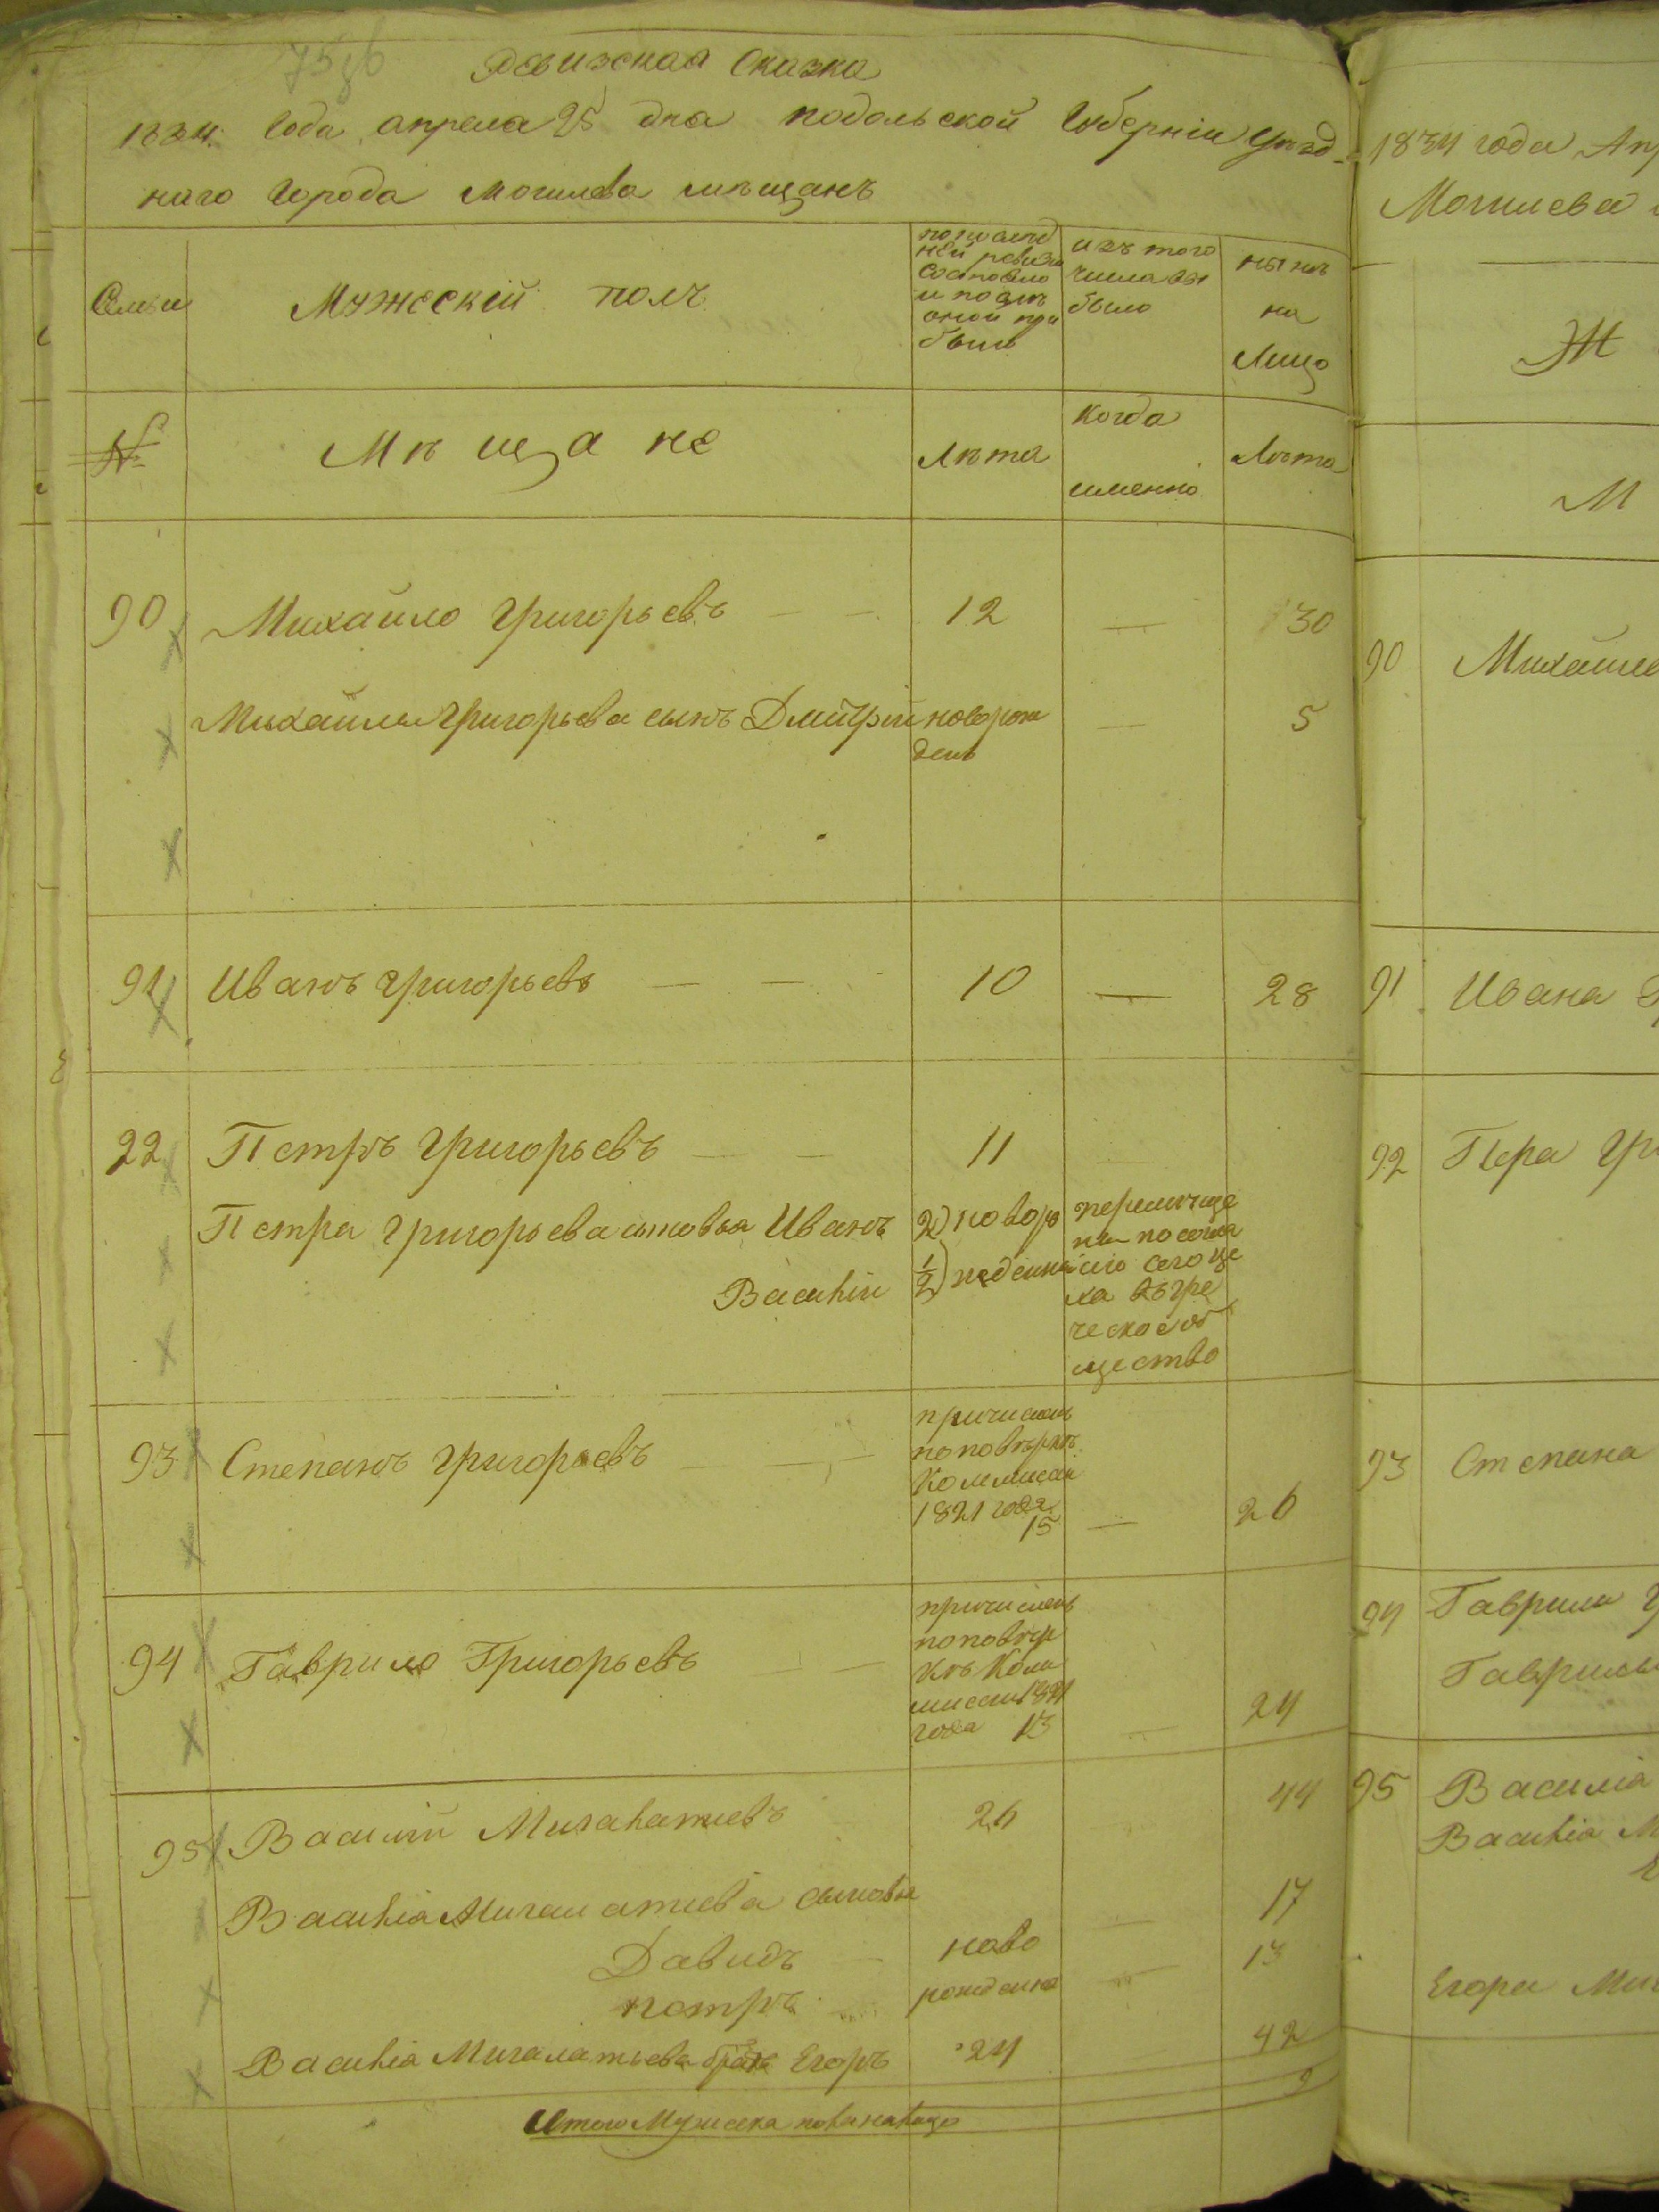 Ревизская Сказка
1834. года апреля 25 дня подольской Губерніи Уѣзд-
наго Города Могилева мѣщанъ
Семьи
Мужескій полъ
по послѣд
ней ревизіи
состояло
и послѣ
оной при
было
изъ того
числа вы
было
нынѣ
на
Лицо
№
Мѣщане
Лѣта
когда
именно
Лѣта
90 Михайло Григорьевъ 12 — 30
Михайлы Григорьева сынъ Дмитрій новорож — 5
денъ
91 Иванъ Григорьевъ — — 10 — 28
22 Петръ Григорьевъ — — 11
Петра Григорьева сыновья Иванъ 2) новоро
Василій 1/2) жденны
перемѣще
ны по
сего це
ха въ гре
ческое об
щество
93 Степанъ Григорьевъ
причисленъ
по повѣркѣ
Коммисіи
1821 года
15 — 26
94 Гаврило Григорьевъ
причисленъ
по повѣр
кѣ Ком
мисіи 1821
года 13 — 24
95 Василій 26 44
Василія сыновья
Давидъ ново — 17
Петръ рожденна — 13
Василія братъ Егоръ 24 42
9
Итого Мужеска пола на лицо
1834 года Апр
Могилева
Ж
М
90 Михайл
91 Ивана Г
92 Петра Гри
93 Степана
94 Гаврилы Г
Гаврилы
95 Василія
Василія М
Егора Ми